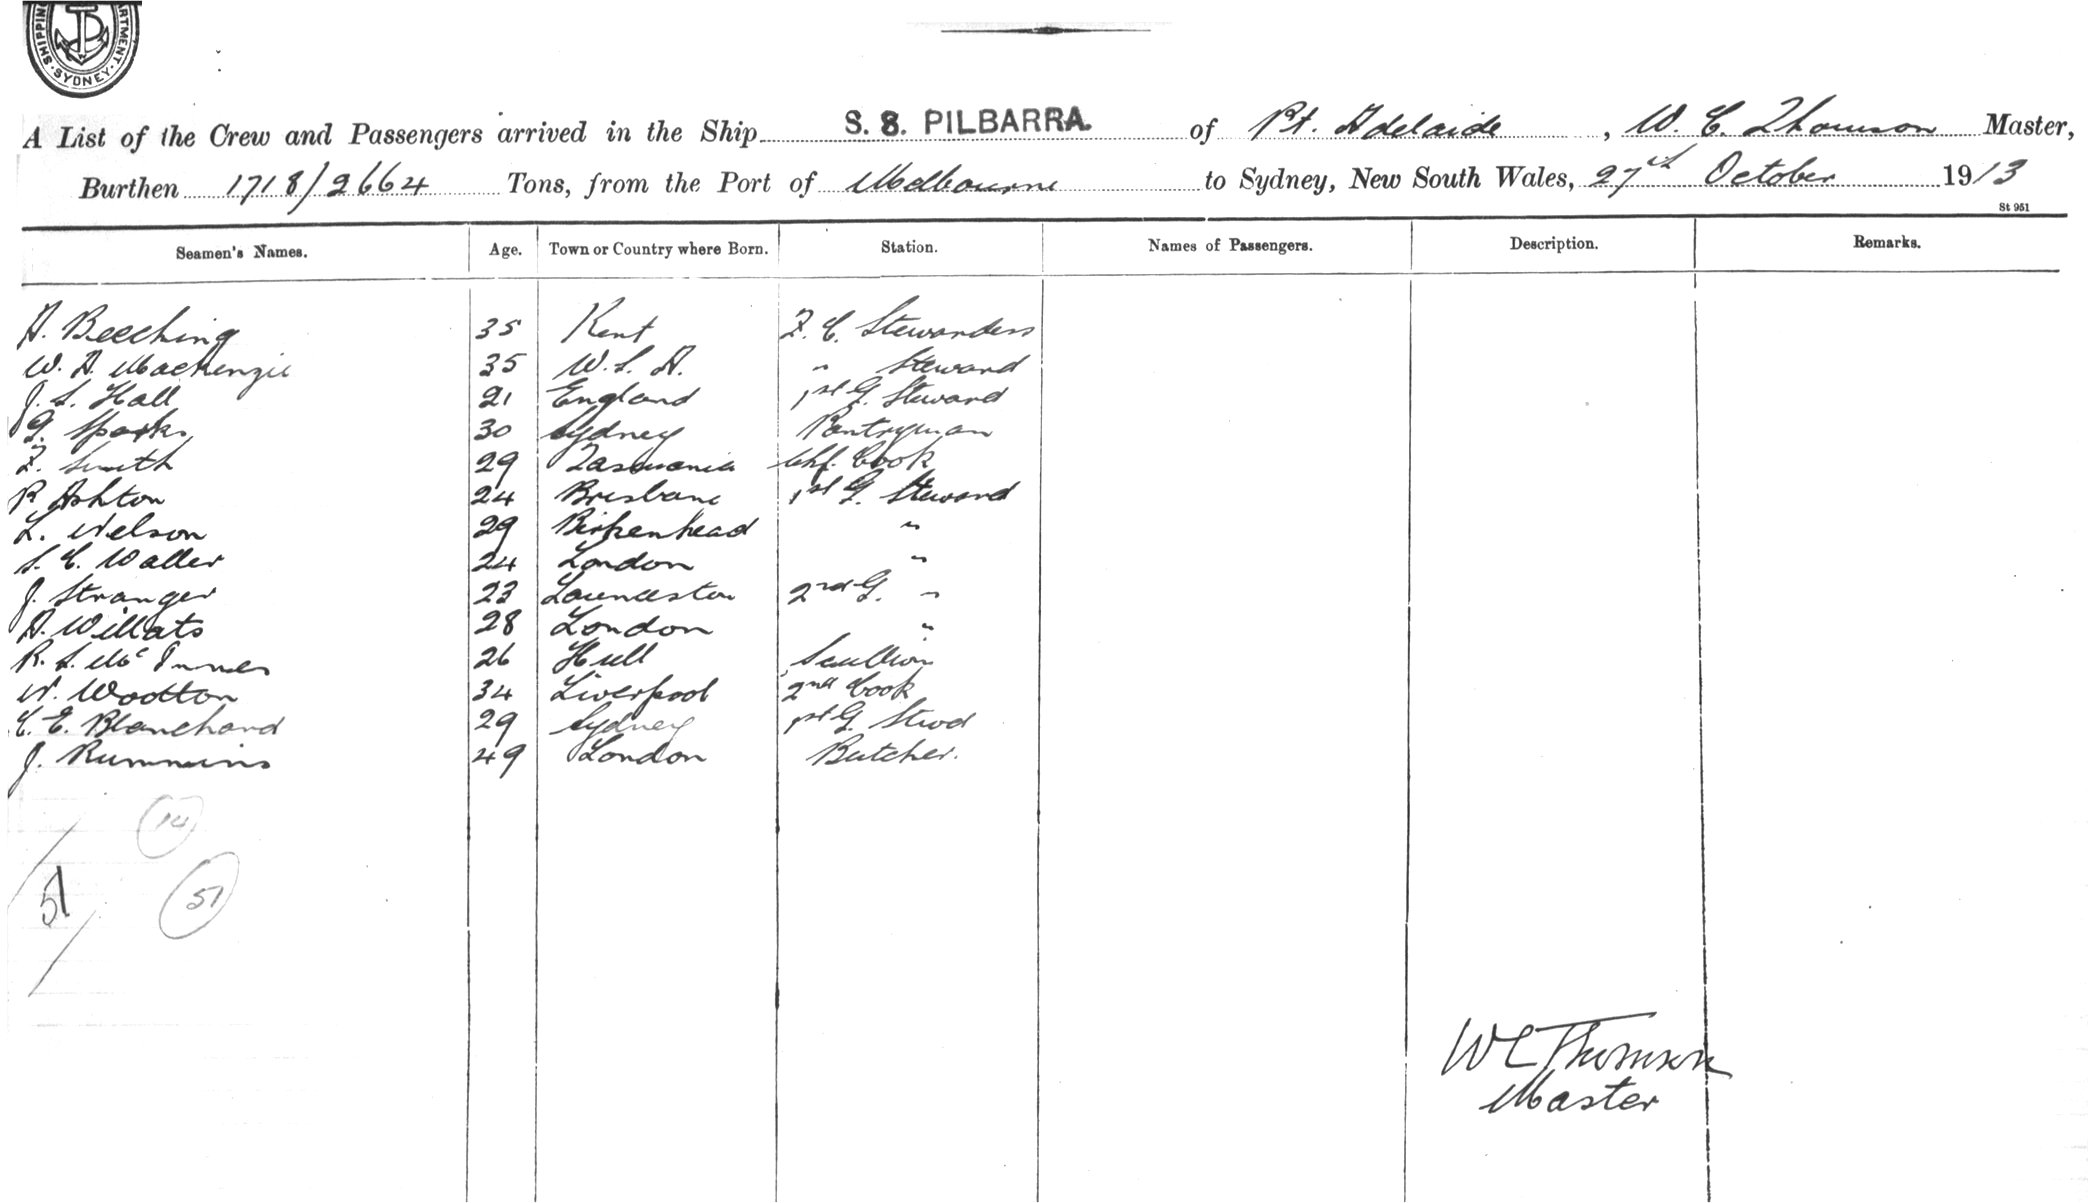 SHIPPING DEPARTMENT · SYDNEY ·
A List of the Crew and Passengers arrived in the Ship S. S. PILBARRA. of Pt. Adelaide, W. C. Thomson Master,
Burthen 1718/2664 Tons, from the Port of Melbourne to Sydney, New South Wales, 27th October 1913
St 951
Seamen's Names. Age. Town or Country where Born. Station. Names of Passengers. Description. Remarks.
A. Beeching 35 Kent F. C. Stewardess
W. A. Mackenzie 35 " Steward
J. S. Hall 21 England 1st G. Steward
G. Sparks 30 Sydney Pantryman
F. Smith 29 Tasmania Chf. Cook
R Ashton 24 Brisbane 1st G. Steward
L. Nelson 29 Birkenhead "
S. C. Waller 24 London "
J. Stranger 23 Launceston 2nd G. "
A. Willats 28 London "
R. S. McInnes 26 Hull Scullion
N. Wootton 34 Liverpool 2nd Cook
C. E. Blanchard 29 Sydney 1st G. Stwd
J. Rummins 49 London Butcher.
14
51 51
W C Thomson
Master